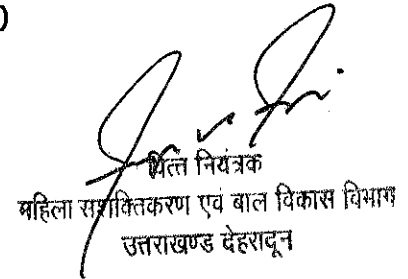 )
वित्त नियंत्रक
महिला सशक्तिकरण एवं बाल विकास विभाग
उत्तराखण्ड देहरादून